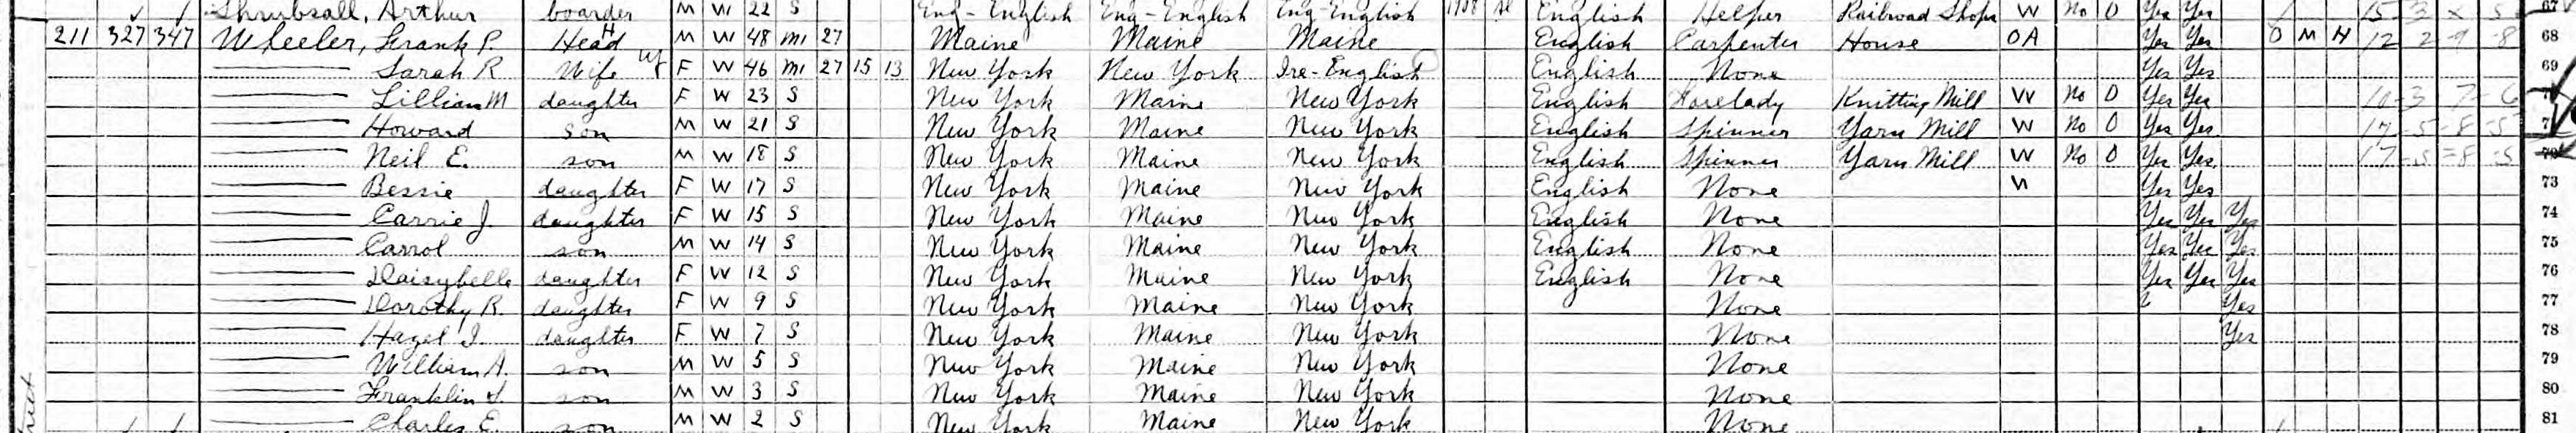 Shrubsall, Arthur boarder M W 22 S Eng-English Eng-English Eng-English 1908 Al English Helper Railroad Shops W No 0 Yes Yes 67
211 327 347 Wheeler, Frank P. Head M W 48 M1 27 Maine Maine Maine English Carpenter House OA Yes Yes O M H 12 2 9 8 68
Sarah R Wife F W 46 M1 27 15 13 New York New York Ire-English English None Yes Yes 69
Lillian M daughter F W 23 S New York Maine New York English Forelady Knitting Mill W No 0 Yes Yes
Howard son M W 21 S New York Maine New York English Spinner Yarn Mill W No 0 Yes Yes 17-5-8-5
Neil E. son M W 18 S New York Maine New York English Spinner Yarn Mill W No 0 Yes Yes
Bessie daughter F W 17 S New York Maine New York English None Yes Yes 73
Carrie J. daughter F W 15 S New York Maine New York English None Yes Yes Yes 74
Carrol son M W 14 S New York Maine New York English None Yes Yes Yes 75
Daisybelle daughter F W 12 S New York Maine New York English None Yes Yes Yes 76
Dorothy R. daughter F W 9 S New York Maine New York None Yes 77
Hazel I. daughter F W 7 S New York Maine New York None Yes 78
William A. son M W 5 S New York Maine New York None 79
Franklin S. son M W 3 S New York Maine New York None 80
Charles E. son M W 2 S New York Maine New York None 81